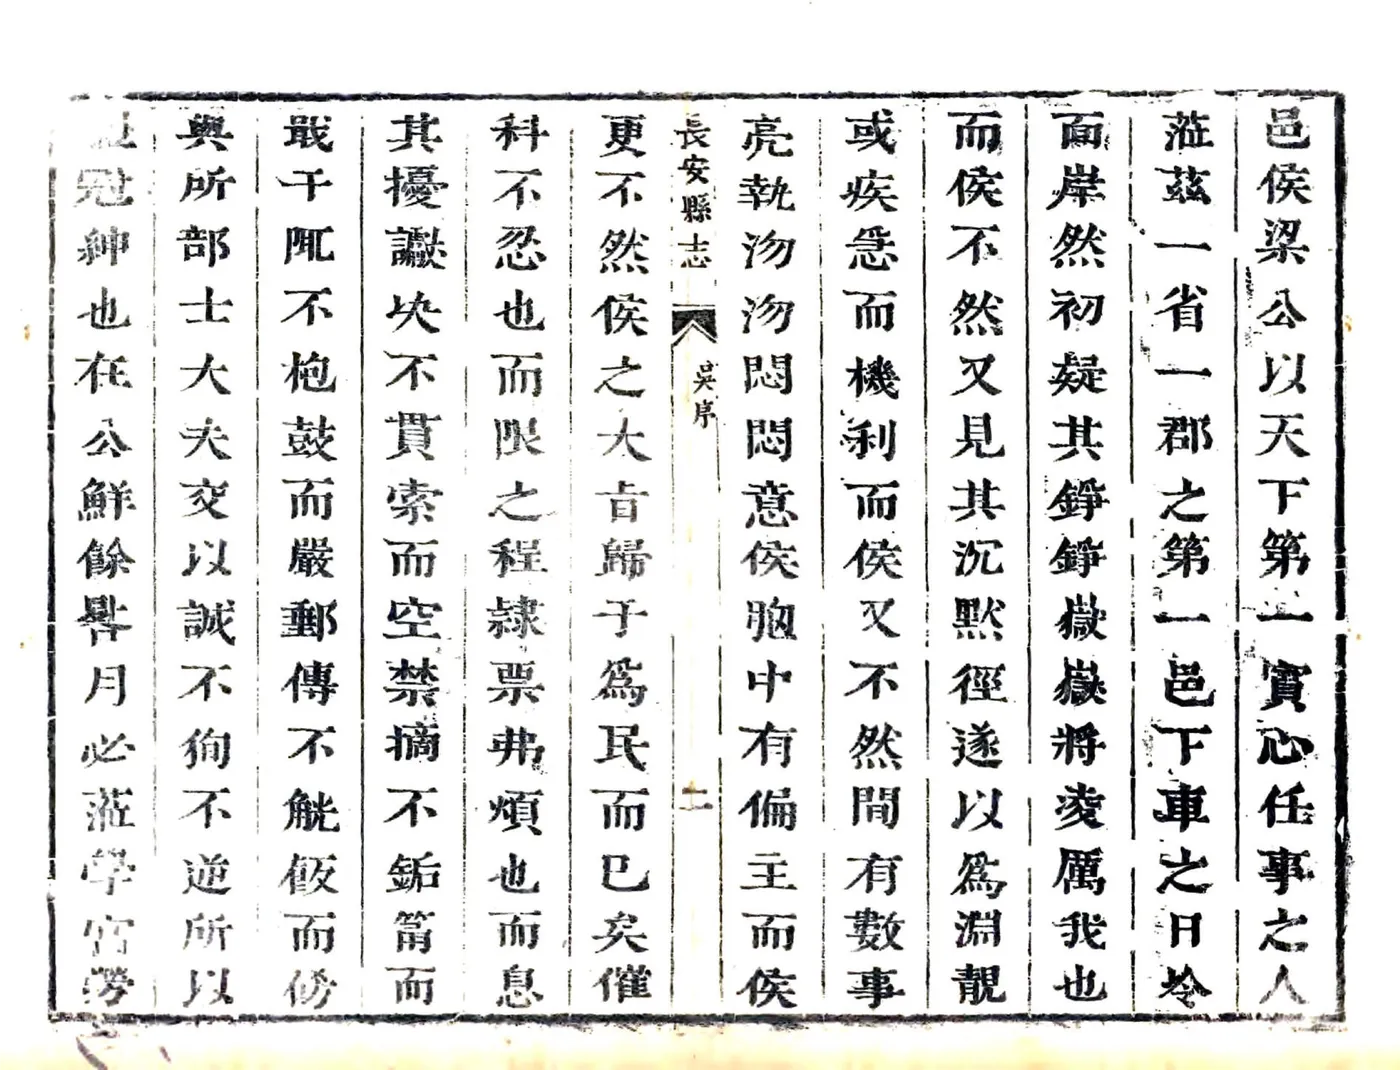 邑侯梁公以天下第一實心任事之人
蒞茲一省一郡之第一邑下車之日坽
面岸然初疑其錚錚嶽嶽將凌厲我也
而侯不然又見其沉默徑遂以為淵靚
或疾怎而機利而侯又不然間有數事
亮執沕沕悶悶意侯胸中有偏主而侯
長安縣志
吳序
二
更不然侯之大旨歸于為民而已矣催
科不忍也而限之程隷票弗煩也而息
其擾讞决不貫索而空禁擿不鉐筩而
戢干陬不枹鼓而嚴郵傳不觥飯而修
與所部士大夫交以誠不徇不逆所以
冠紳也在公鮮餘晷月必蒞學宮